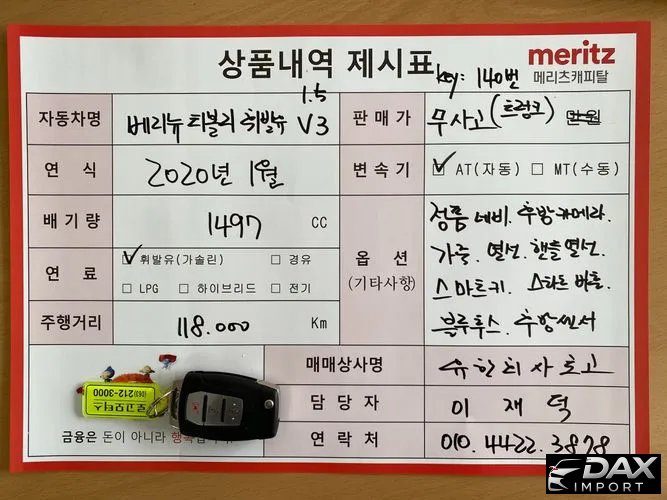 상품내역 제시표
meritz
메리츠캐피탈
key: 140번
자동차명
베리뉴 티볼리 휘발유 1.5 V3
판매가
무사고 (트렁크) 만원
연 식
2020년 1월
변속기
☑ AT(자동) ☐ MT(수동)
배기량
1497 CC
옵 션
(기타사항)
정품 네비. 후방카메라.
가죽. 열선. 핸들열선.
스마트키. 스타트 버튼.
블루투스. 후방센서
연 료
☑ 휘발유(가솔린) ☐ 경유
☐ LPG ☐ 하이브리드 ☐ 전기
주행거리
118.000 Km
매매상사명
담 당 자
이 재 덕
연 락 처
010. 4422. 3878
로고모터스
(063)212-3000
금융은 돈이 아니라
DAX
IMPORT